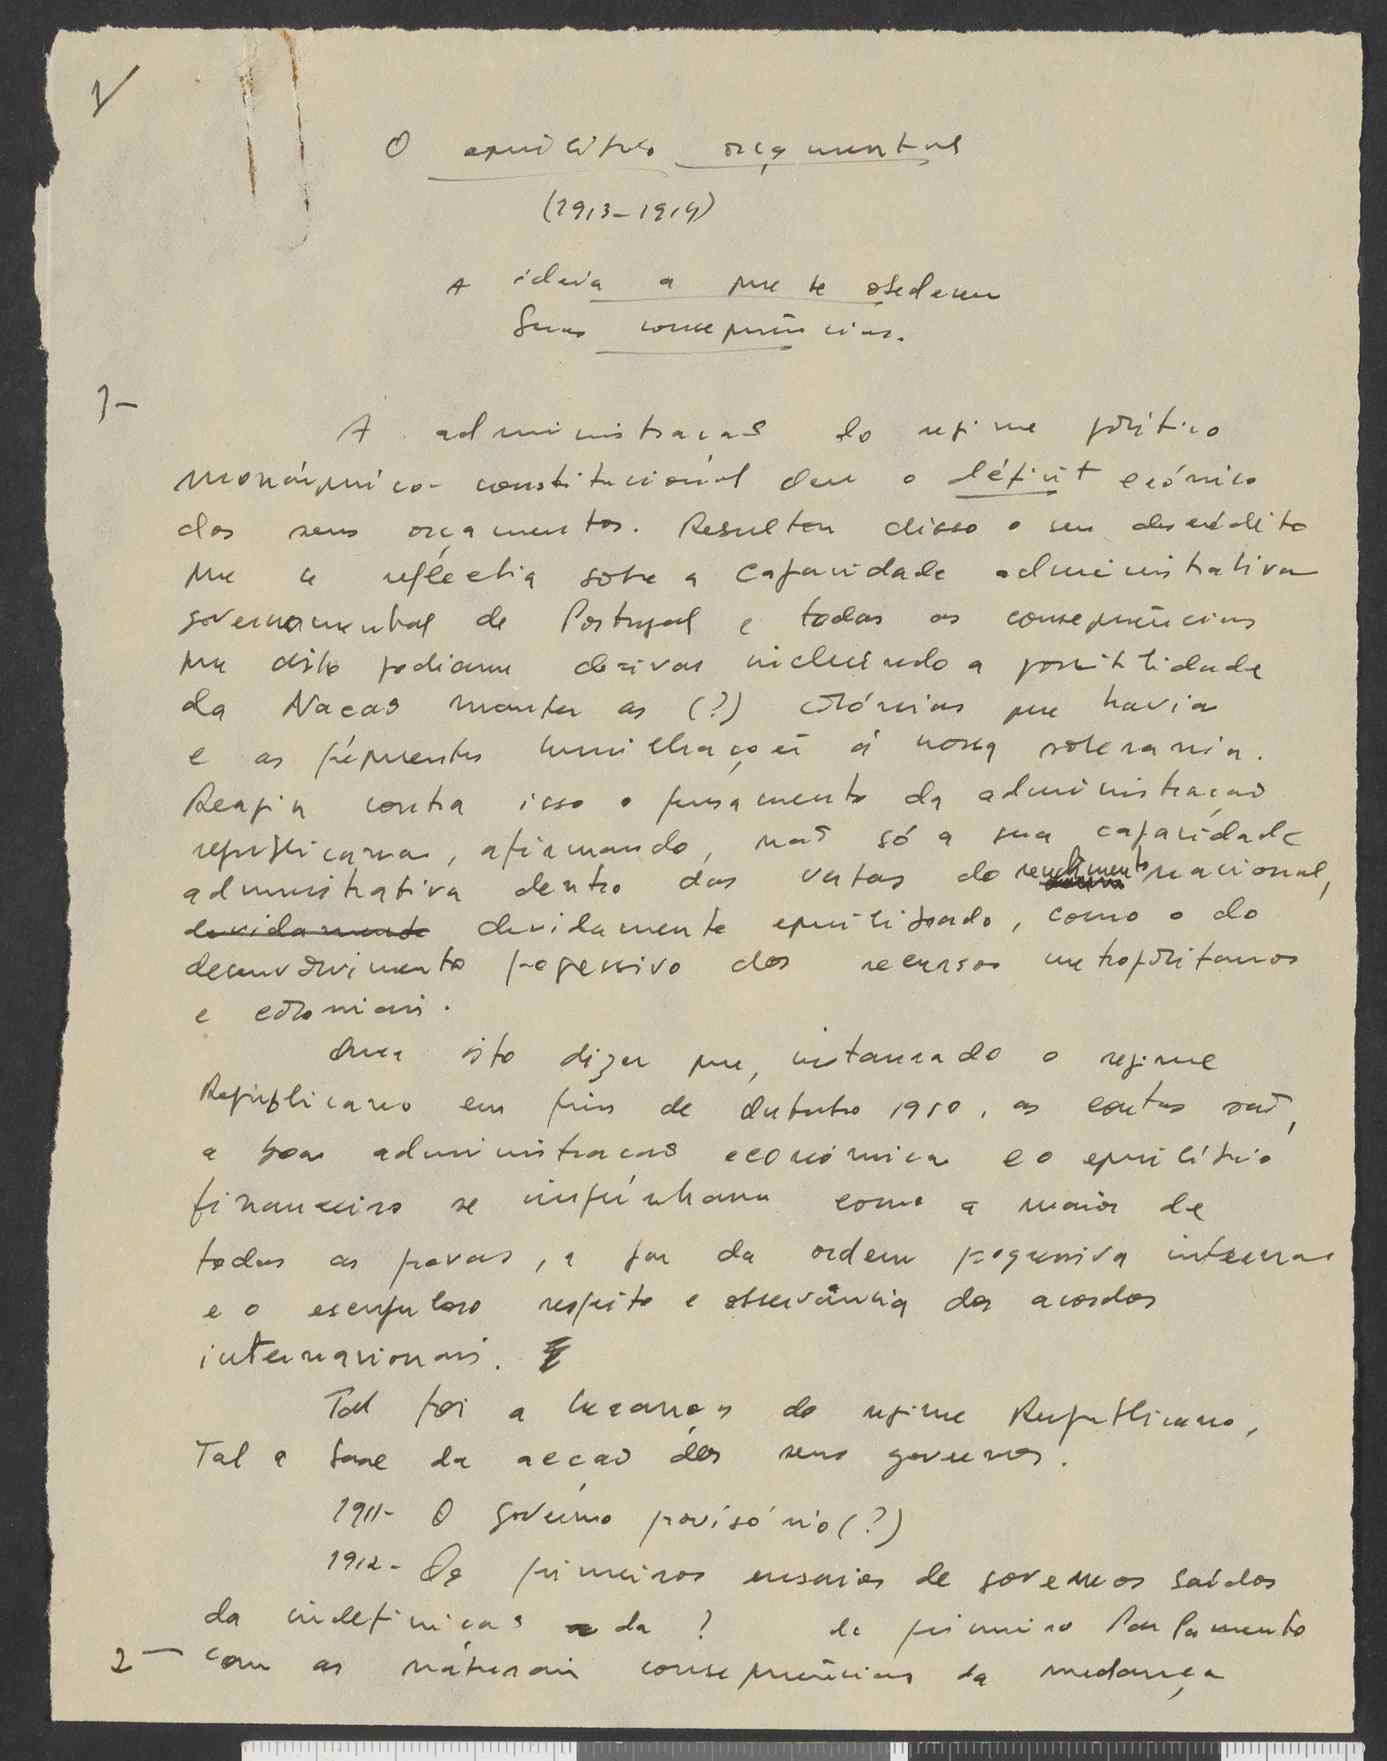 1
O equilibrio orçamental
(1913-1914)
A ideia a que se obedeceu
Suas consequências.
1-
A administração do regime político
monárquico-constitucional deu o déficit crónico
dos seus orçamentos. Resultou disso o seu descrédito
que se reflectia sobre a capacidade administrativa
governamental de Portugal e todas as consequências
que disto podiam derivar incluindo a possibilidade
da Nação manter as (?) colónias que havia
e as frequentes humilhações á nossa soberania.
Reagiu contra isso o pensamento da administração
republicana, afirmando, não só a sua capacidade
administrativa dentro das verbas do rendimento nacional,
devidamente devidamente equilibrado, como o do
desenvolvimento progressivo dos recursos metropolitanos
e coloniais.
Quer isto dizer que, instaurado o regime
Republicano em fins de Outubro 1910, as contas sãs,
a boa administração económica e o equilíbrio
financeiro se impunham como a maior de
todas as provas, a par da ordem progressiva interna
e o escrupuloso respeito e observância dos acordos
internacionais.
Tal foi a herança do regime Republicano,
Tal a base da acção dos seus governos.
1911- O Govêrno provisório (?)
1912- Os primeiros ensaios de governos saídos
da indefinição da ? do primeiro Parlamento
2- com as naturais consequências da mudança